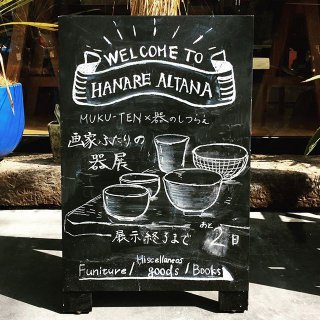 WELCOME TO
HANARE ALTANA
MUKU-TEN×器のしつらえ
画家ふたりの
器展
展示終了まで あと2日
Miscellaneos
Funiture/ goods/Books